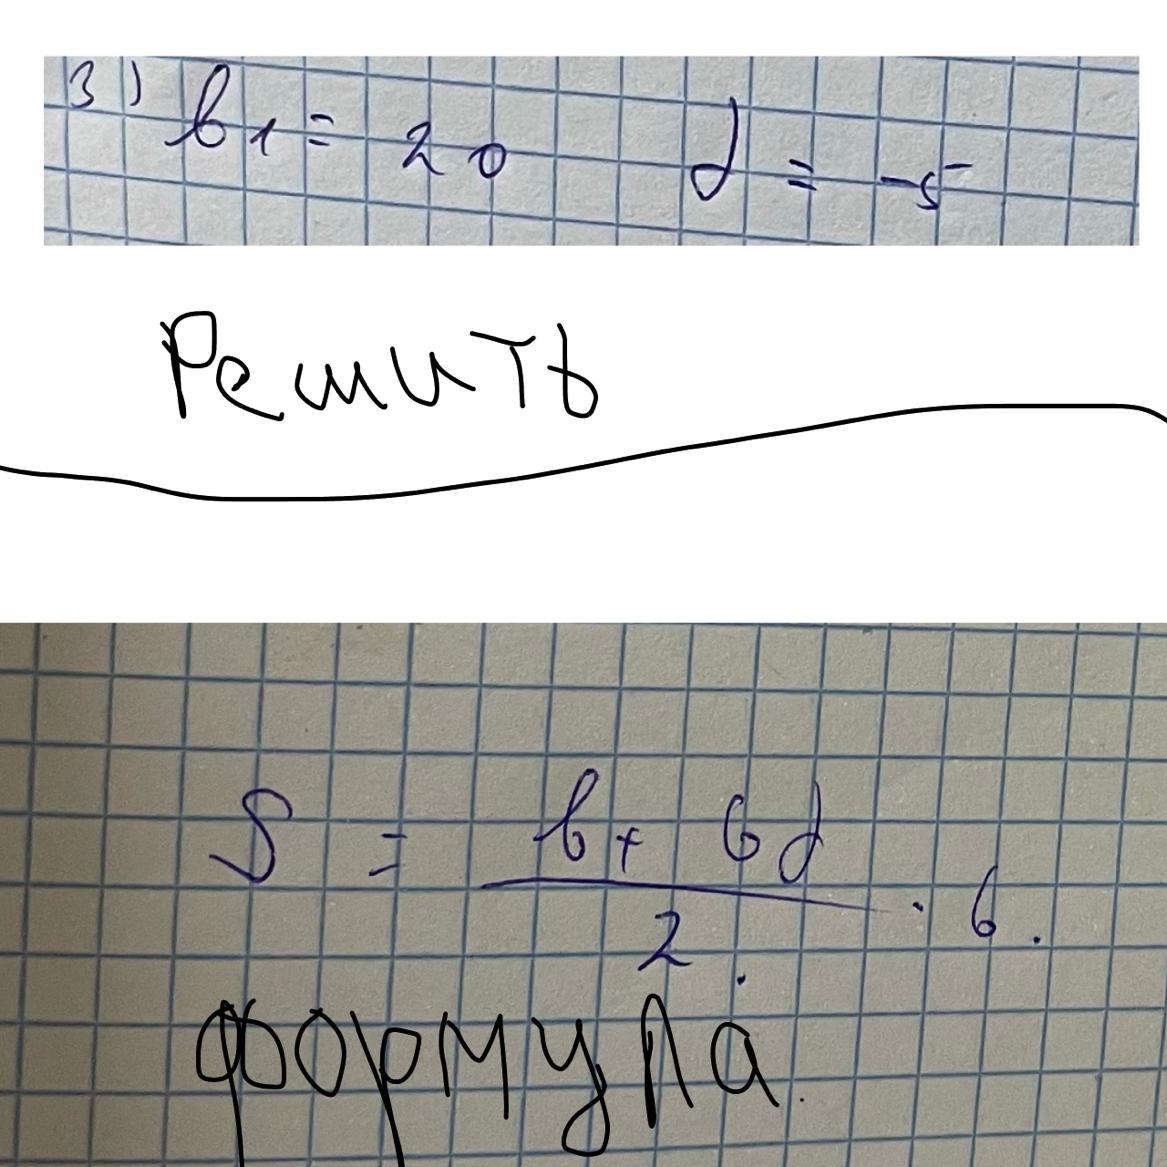 3) b₁ = 20 d = -5
Решить
S = b + 6d
2 . · 6 .
формула.